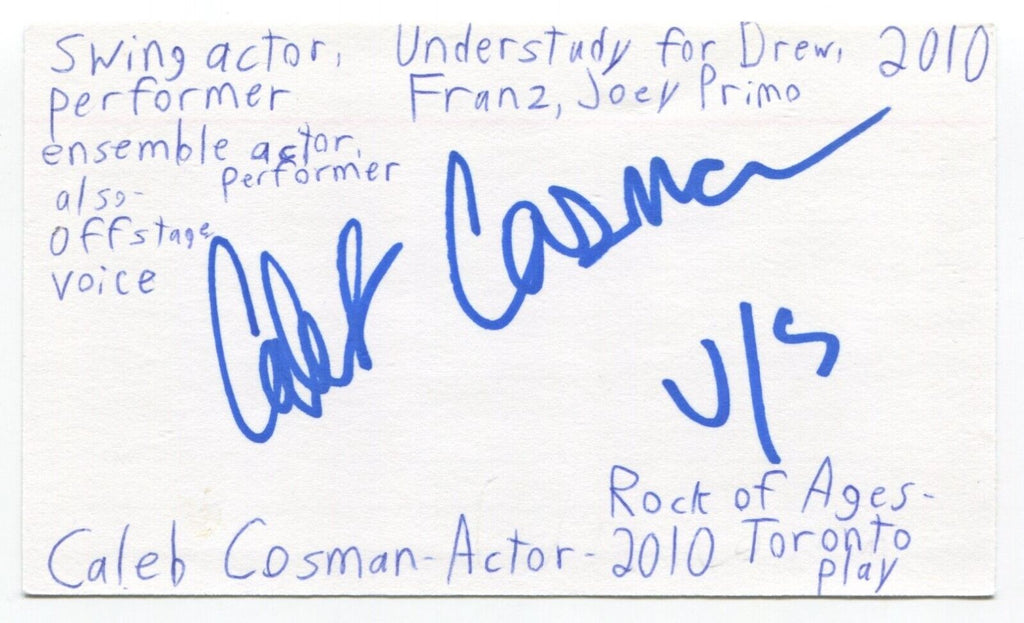 Swing actor, Understudy for Drew, 2010
performer Franz, Joey Primo
ensemble actor,
performer
also-
offstage
voice
Caleb Cosman
U/S
Rock of Ages-
Caleb Cosman-Actor-2010 Toronto
play